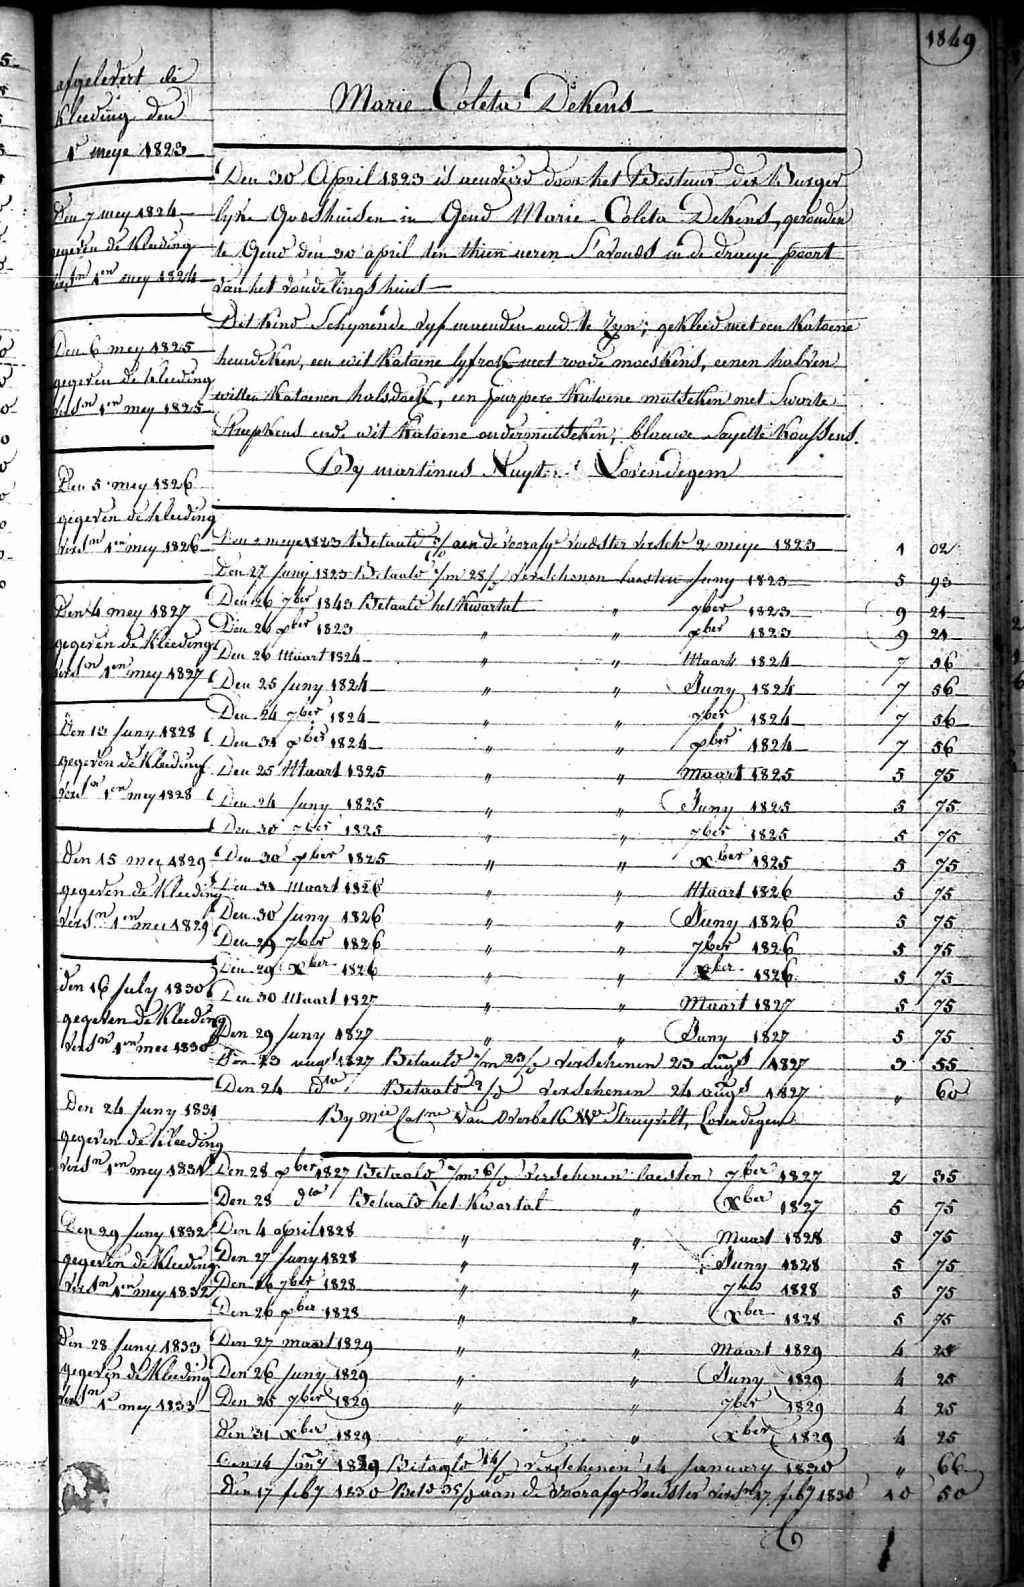 1849
afgelevert de
kleeding den
1e meye 1823
Den 7 mey 1824
gegeven de kleeding
versn 1en mey 1824
Den 6 mey 1825
gegeven de kleeding
versn 1en mey 1825
Den 5 mey 1826
gegeven de kleeding
versn 1en mey 1826
Den 4 mey 1827
gegeven de kleeding
versn 1en mey 1827
Den 13 Juny 1828
gegeven de kleeding
versn 1en mey 1828
Den 15 mei 1829
gegeven de kleeding
versn 1en mei 1829
Den 16 July 1830
gegeven de kleeding
versn 1en mei 1830
Den 24 Juny 1831
gegeven de kleeding
versn 1en mey 1831
Den 29 Juny 1832
gegeven de kleeding
versn 1en mey 1832
Den 28 Juny 1833
gegeven de kleeding
versn 1e mey 1833
Marie Coleta Dekens
Den 30 April 1823 is aenveird door het Bestuur der Burger
lyke Godshuisen in Gend Marie Coleta Dekens, gevonden
te Gend den 30 april ten thien ueren S'avonds in de draeye poort
van het vondelingshuis
Dit kind Schynende vyf maenden oud te Zyn; gekleed met een katoene
hemdeken, een wit katoene lyfrok met roode moeskens, eenen halven
witten katoenen halsdoek, een pourpere katoene mutseken met Swarte
Streepkens ende wit katoene ondermutseken, blauwe Sayette koussens.
By martinus Nuyt Lovendegem
Den 2 meye 1823 Betaald aen de voorafge voedster versche 2 meye 1823 1 02
Den 27 Juny 1823 Betaald 2/m 28/ verschenen laesten Juny 1823 5 93
Den 26 7ber 1843 Betaald het Kwartal " 7ber 1823 9 21
Den 26 xber 1823 " " xber 1823 9 21
Den 26 Maart 1824 " " Maart 1824 7 56
Den 25 Juny 1824 " " Juny 1824 7 56
Den 24 7ber 1824 " " 7ber 1824 7 56
Den 31 xber 1824 " " xber 1824 7 56
Den 25 Maart 1825 " " Maart 1825 5 75
Den 24 Juny 1825 " " Juny 1825 5 75
Den 30 7ber 1825 " " 7ber 1825 5 75
Den 30 xber 1825 " " Xber 1825 5 75
Den 31 Maart 1826 " " Maart 1826 5 75
Den 30 Juny 1826 " " Juny 1826 5 75
Den 29 7ber 1826 " " 7ber 1826 5 75
Den 29 Xber 1826 " " Xber 1826 5 75
Den 30 Maart 1827 " " Maart 1827 5 75
Den 29 Juny 1827 " " Juny 1827 5 75
Den 23 augt 1827 Betaald 1/m 23/ verschenen 23 augt 1827 3 55
Den 24 dto Betaald verschenen 24 augt 1827 " 60
By mie Catne Van Overbek Struyvelt, Lovendegem
Den 28 xber 1827 Betaald 1/m 6/ verschenen laesten 7ber 1827 2 35
Den 28 dto Betaald het Kwartal " Xber 1827 5 75
Den 4 april 1828 " " Maart 1828 5 75
Den 27 Juny 1828 " " Juny 1828 5 75
Den 26 7ber 1828 " " 7ber 1828 5 75
Den 26 xber 1828 " " Xber 1828 5 75
Den 27 maart 1829 " " Maart 1829 4 25
Den 26 Juny 1829 " " Juny 1829 4 25
Den 25 7ber 1829 " " 7ber 1829 4 25
Den 31 Xber 1829 " " Xber 1829 4 25
Den 14 Jany 1829 Betaald 14/ verschenen 14 January 1830 " 66
Den 17 feby 1830 Betd 35/ aan de voorafge voedster versn 17 feby 1830 10 50